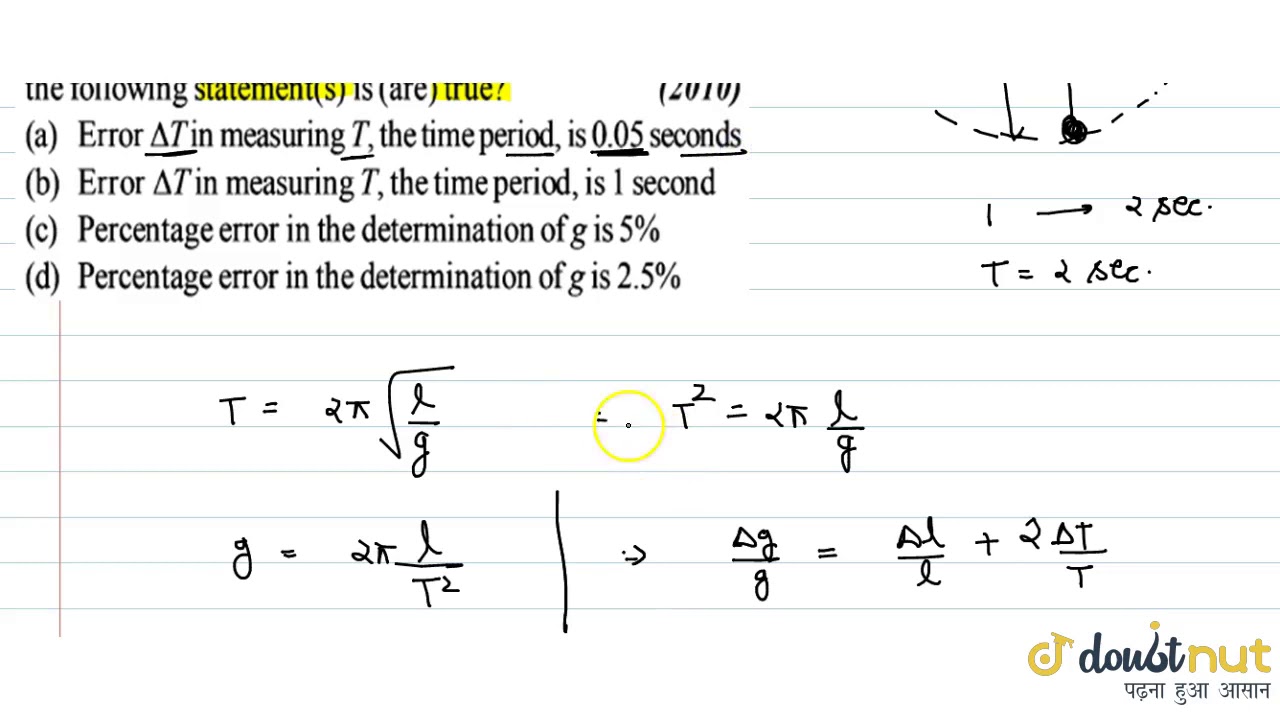 the following statement(s) is (are) true? (2010)
(a) Error ΔT in measuring T, the time period, is 0.05 seconds
(b) Error ΔT in measuring T, the time period, is 1 second
(c) Percentage error in the determination of g is 5%
(d) Percentage error in the determination of g is 2.5%
1 → 2 sec.
T = 2 sec.
T = 2π √(l/g) = T² = 2π l/g
g = 2π l/T² ⇒ Δg/g = Δl/l + 2 ΔT/T
doubtnut
पढ़ना हुआ आसान